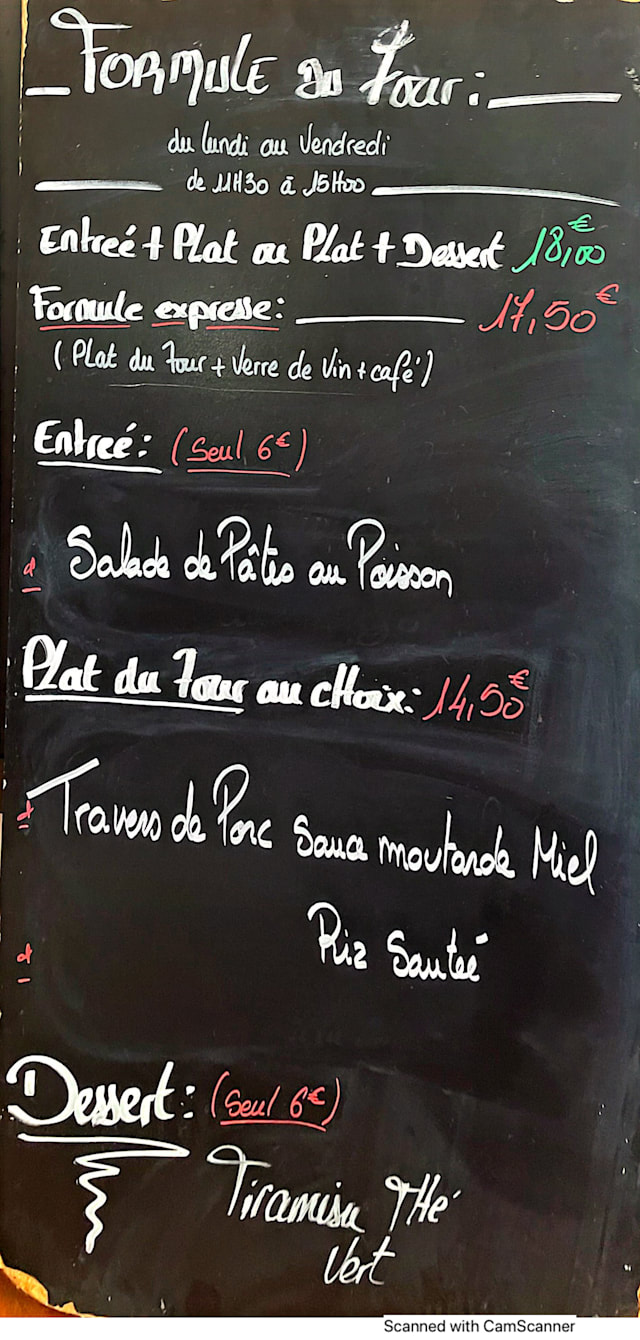 Formule du Jour :
du lundi au Vendredi
de 11H30 à 15H00
Entreé + Plat ou Plat + Dessert 18,00 €
Formule expresse : 17,50 €
( Plat du Jour + Verre de Vin + café )
Entreé : (Seul 6€)
Salade de Pâtes au Poisson
Plat du Jour au cHoix : 14,50 €
Travers de Porc Sauce moutarde Miel
Riz Sauteé
Dessert : (Seul 6€)
Tiramisu THé
Vert
Scanned with CamScanner